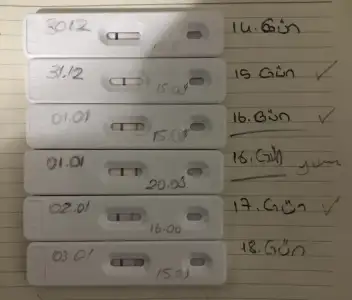 30.12 14. Gün
31.12 15.00 15 Gün ✓
01.01 15.00 16. Gün ✓
01.01 20.00 16. Gün
02.01 16.00 17. Gün ✓
03.01 15.01 18. Gün